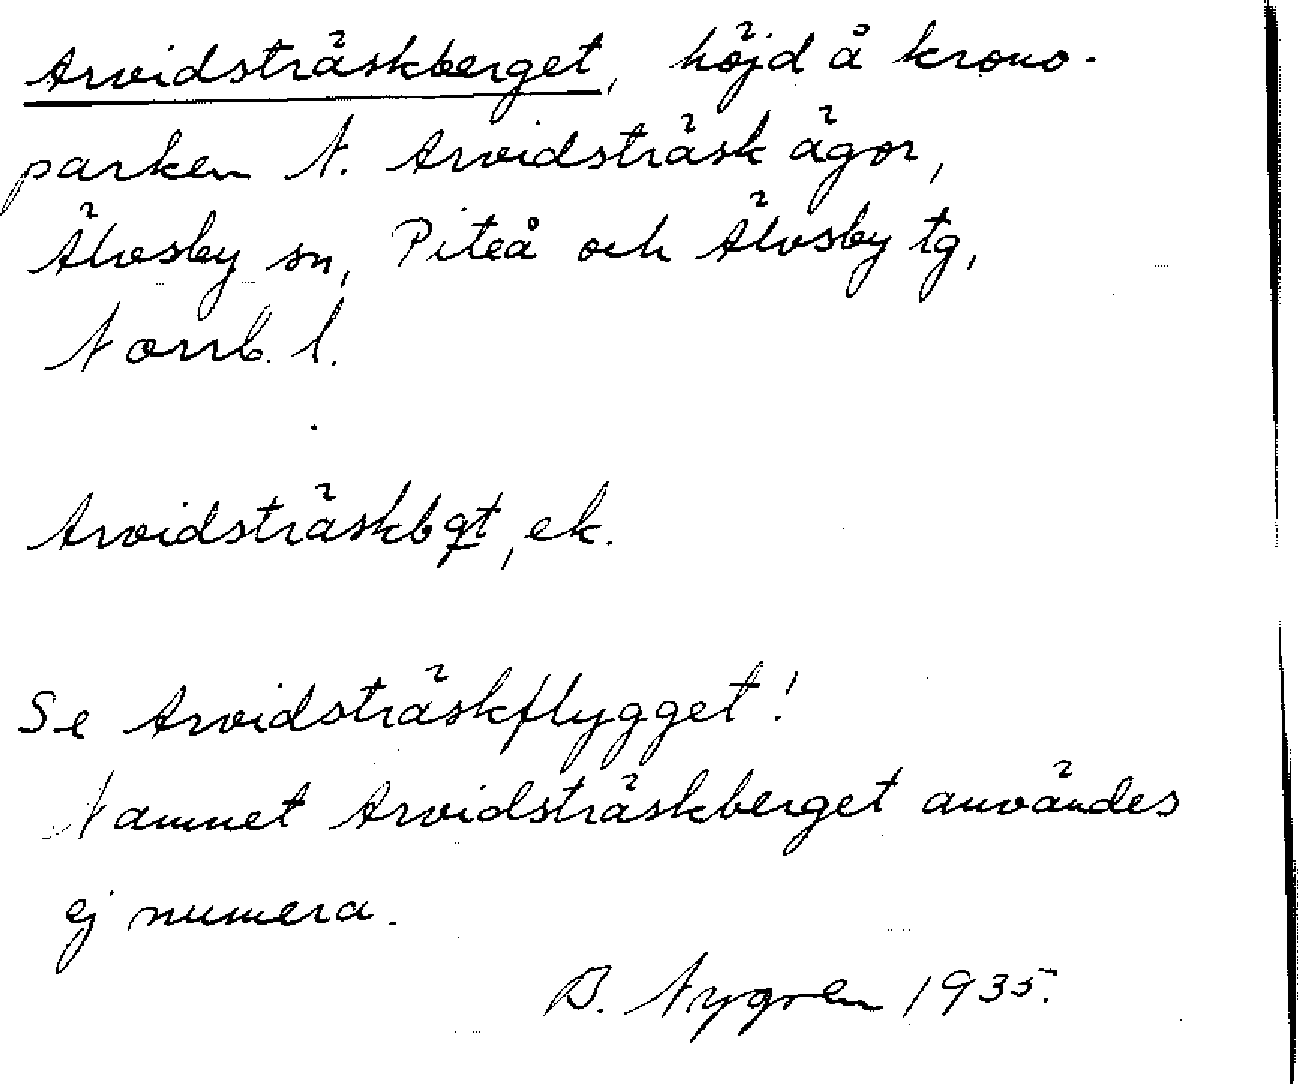 Arvidsträskberget, höjd å krono-
parken N. Arvidsträsk ägor,
Älvsby sn, Piteå och Älvsby tg,
Norrb. l.
Arvidsträskbgt, ek.
Se Arvidsträskflygget!
Namnet Arvidsträskberget användes
ej numera.
B. Nygren 1935.